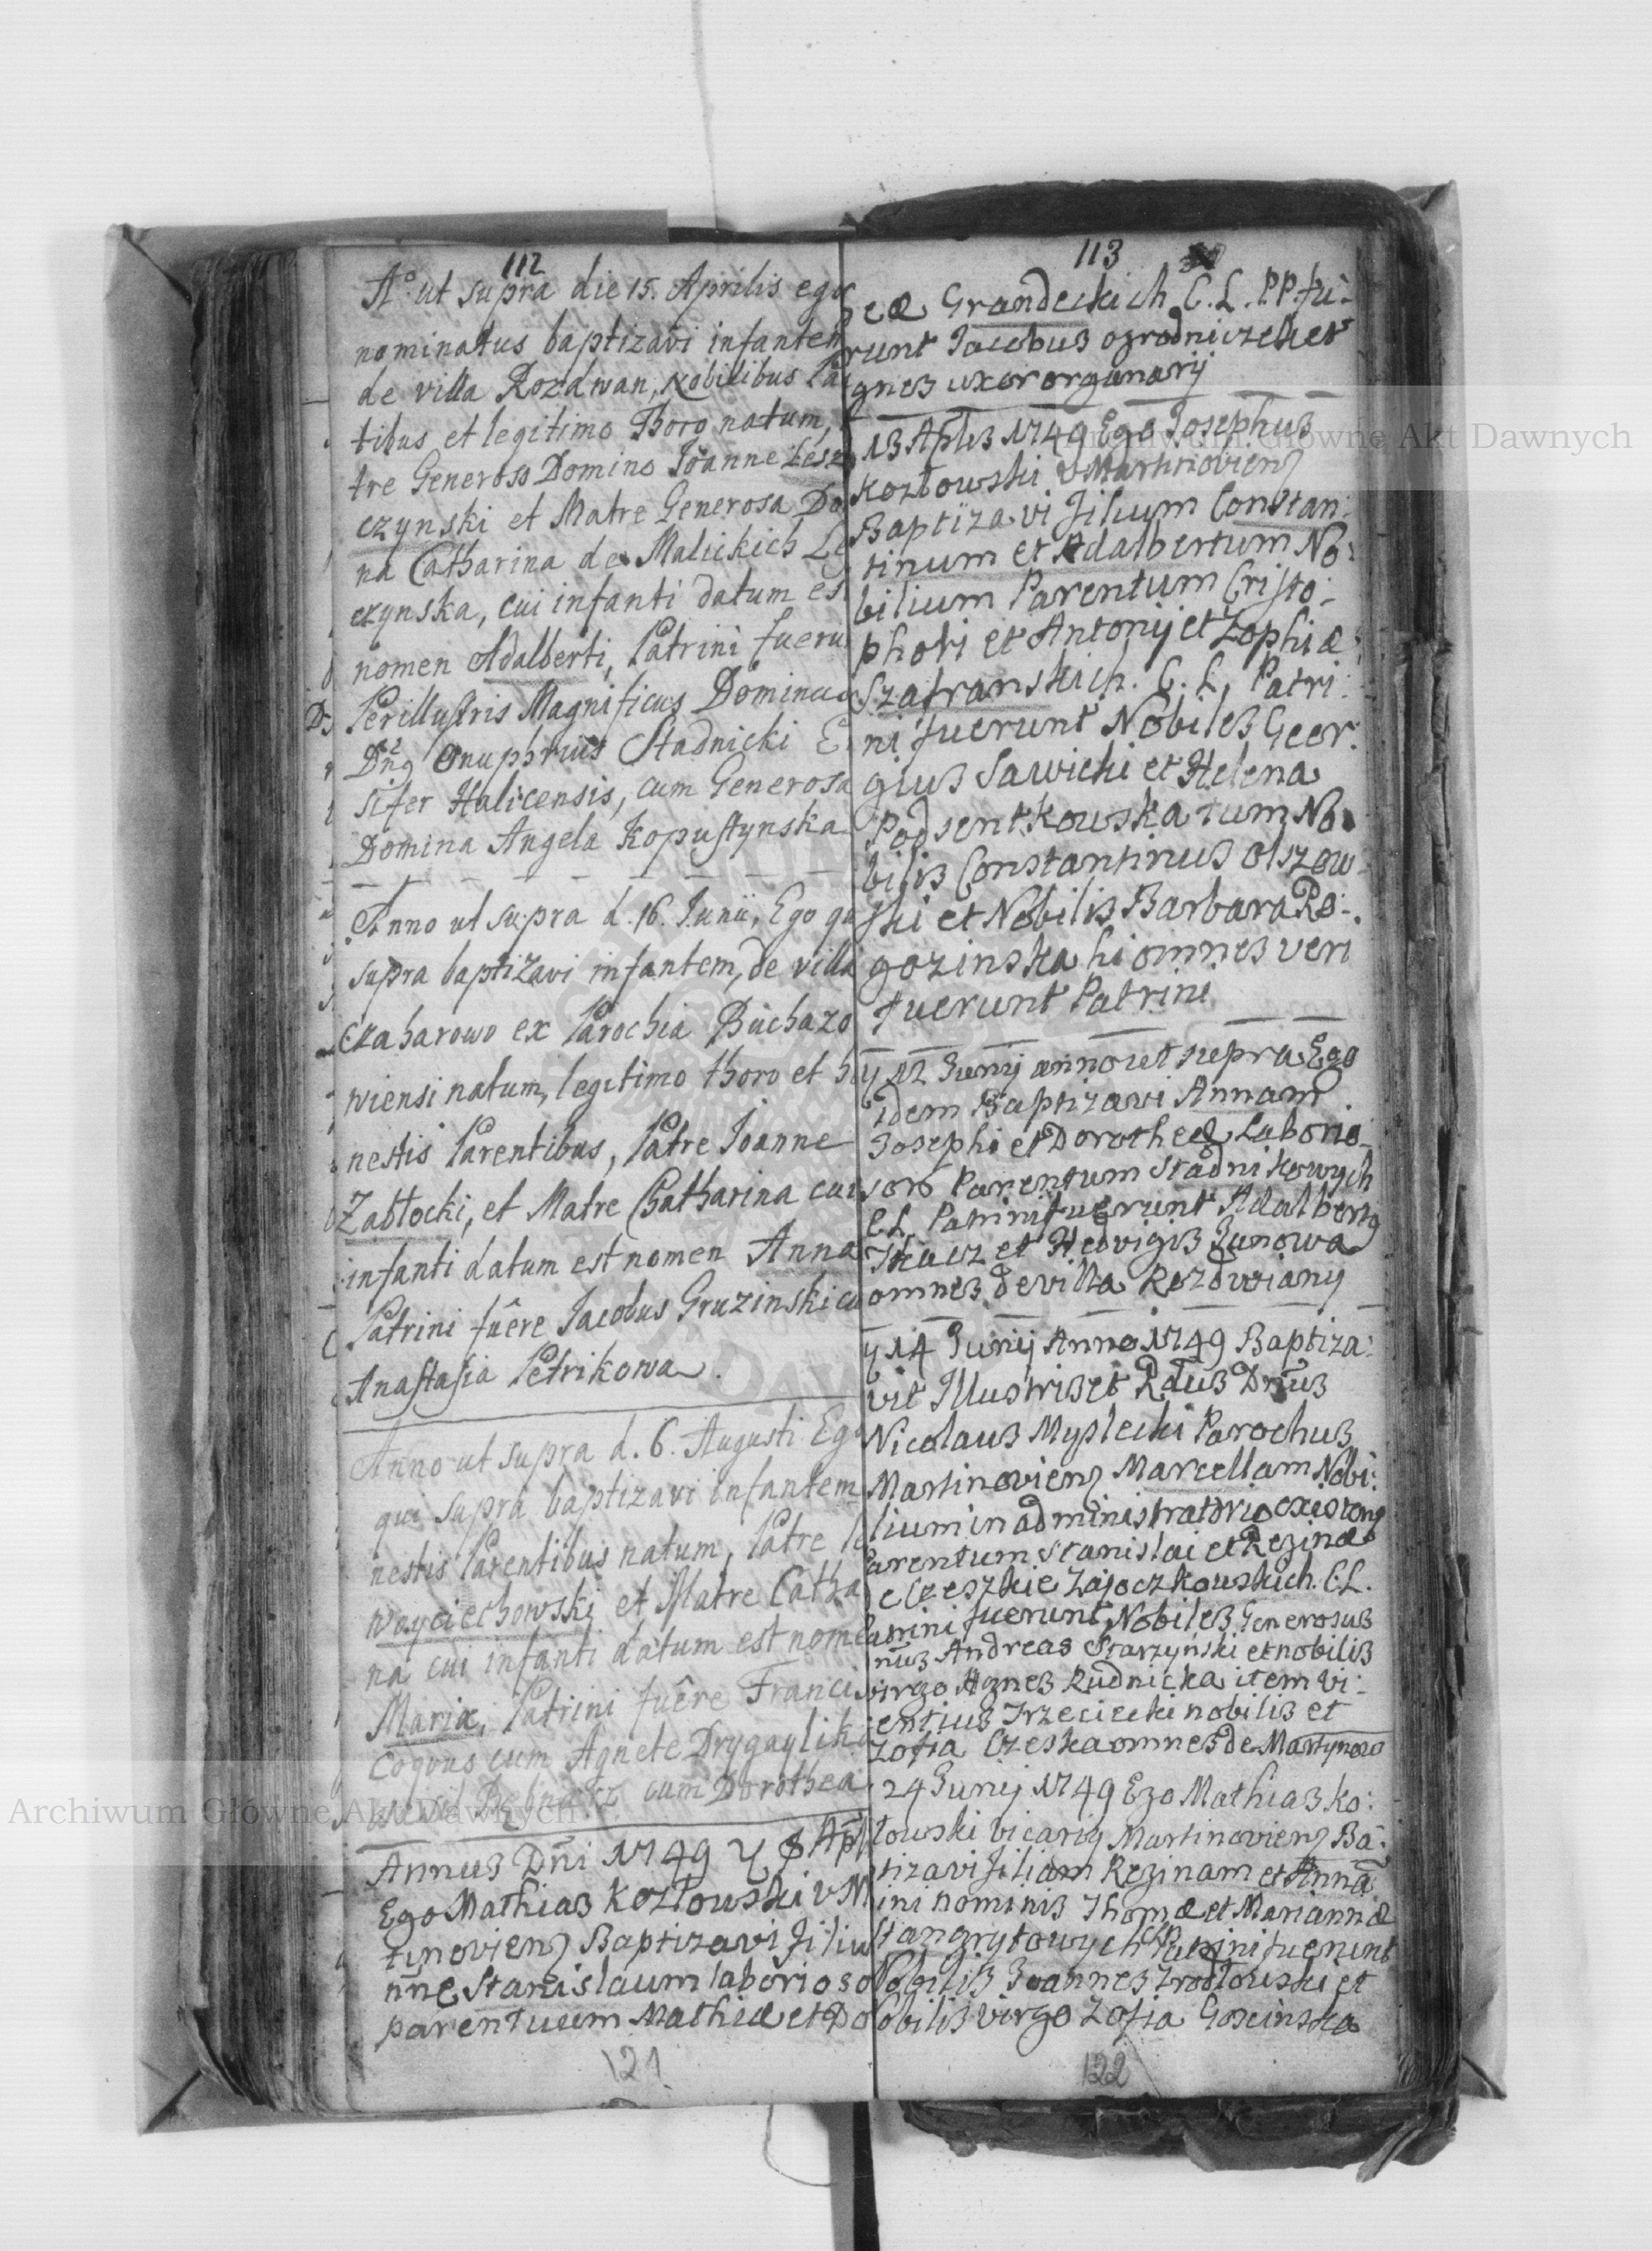 112
A° ut supra die 15. Aprilis ego
nominatus baptizavi infantem
de villa Rozdwan, Nobilibus
tibus et legitimo Thoro natum,
tre Generoso Domino Joanne Lesz
czynski et Matre Generosa Do
na Catharina de Malickich
czynska, cui infanti datum es
nomen Adalberti, Patrini fueru
Perillustris Magnificus Dominus
Onuphrius Stadnicki
sifer Halicensis, cum Generosa
Domina Angela Kopustynska
Anno ut supra d. 16. Junii, Ego qu
supra baptizavi infantem, de villa
Czaharowo ex Parochia Buchazo
wiensi natum, legitimo thoro et
nestis Parentibus, Patre Joanne
Zabłocki, et Matre Chatharina cui
infanti datum est nomen Anna
Patrini fuêre Jacobus Gruzinski cu
Anastasia Petrikowa.
Anno ut supra d. 6. Augusti Ego
qui supra baptizavi infantem
nestis Parentibus natum, Patre
Woyciechowski et Matre Catha
na cui infanti datum est nome
Mariæ, Patrini fuêre Franci
Coquus cum Agnete Drygaylik
cum Dorothea
Annus Dñi 1749 Apl
Ego Mathias Kozłowski v M
tinoviens Baptizavi Filiu
nñe Stanislaum laborioso
parentuum Mathiæ et Do
121
113
Grandeckich C. L. P.P. fu-
runt Jacobus ogrodniczek et
gnes uxor organarij
13 Aplis 1749 Ego Josephus
Kozłowski v Martinoviens
Baptizavi Filium Constan-
tinum et Adalbertum No-
bilium Parentum Cristo-
phori et Antonij et Zophiæ
Szafranskich. C. L. Patri-
ni fuerunt Nobiles Geor-
gius Sawicki et Helena
Podsentkowska tum No
bilis Constantinus Olszow-
ski et Nobilis Barbara Ro-
gozinska hi omnes veri
fuerunt Patrini
y 12 Junij anno ut supra Ego
idem Baptizavi Annam
Josephi et Dorotheæ Laborio-
sor Parentum Stadnikowych
C L Patrini fuerunt Adalbert9
Tkacz et Hedvigis Janowa
omnes de villa Rozdwiany
y 14 Junij Anno 1749 Baptiza-
vit Illustris et Rdus Dnus
Nicolaus Myslecki Parochus
Martinoviens Marcellam Nobi-
lium in administratorio
arentum Stanislai et Reginæ
Czeszkie Zajoczkowskich. C.L.
atrini fuerunt Nobiles Generosus
nus Andreas Starzynski et nobilis
virgo Agnes Rudnicka item Vi-
entius Trzeciecki nobilis et
Zofia Czeska omnes de Martynow
24 Junij 1749 Ego Mathias Ko-
łowski vicarij Martinoviens Ba-
tizavi Filiam Reginam et Annā
ini nominis Thomæ et Mariannæ
Stangrytowych Patrini fuerunt
Nobilis Joannes Zrodłowski et
Nobilis virgo Zofia Goscinska
122
Archiwum Główne Akt Dawnych
Archiwum Główne Akt Dawnych